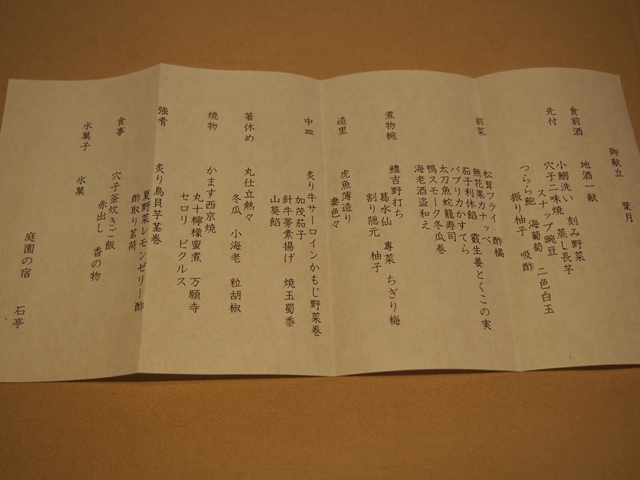 御献立　葉月
食前酒
地酒一献
先付
小鯛洗い　刻み野菜
穴子二味焼　蒸し長芋
スナップ豌豆　二色白玉
つらら鮑　海葡萄
振り柚子　吸酢
前菜
松茸フライ　酢橘
無花果カナッペ
茄子利休餡　叢生姜とくこの実
パプリカかすてら
太刀魚蛇籠寿司
鴨スモーク冬瓜巻
海老酒盗和え
煮物椀
鱧吉野打ち
葛水仙　蓴菜　ちぎり梅
割り隠元　柚子
造里
虎魚薄造り
妻色々
中皿
炙り牛サーロインかもじ野菜巻
加茂茄子
針牛蒡素揚げ　焼玉蜀黍
山葵餡
箸休め
丸仕立熱々
冬瓜　小海老　粒胡椒
焼物
かます西京焼
丸十檸檬蜜煮　万願寺
セロリ　ピクルス
強肴
炙り鳥貝芋茎巻
夏野菜レモンゼリー酢
酢取り茗荷
食事
穴子釜炊きご飯
赤出し　香の物
水菓子
氷菓
庭園の宿　石亭